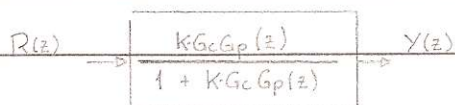 R(z)
K·GcGp(z)
1 + K·GcGp(z)
Y(z)